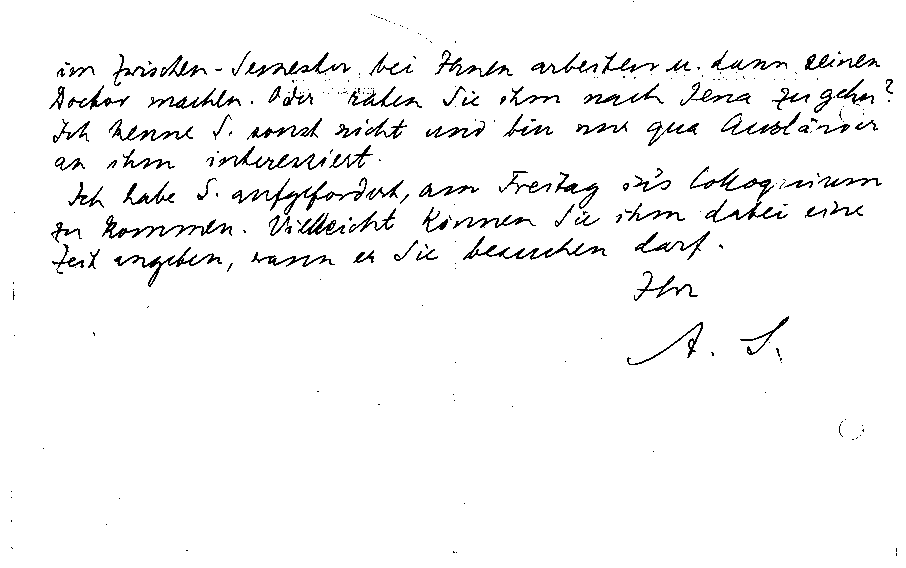 im Zwischen-Semester bei Ihnen arbeiten u. dann seinen
Doctor machen. Oder raten Sie ihm nach Jena zu gehen?
Ich kenne S. sonst nicht und bin nur qua Ausländer
an ihm interessiert.
Ich habe S. aufgefordert, am Freitag in's Colloquium
zu kommen. Vielleicht können Sie ihm dabei eine
Zeit angeben, wann er Sie besuchen darf.
Ihr
A. S.